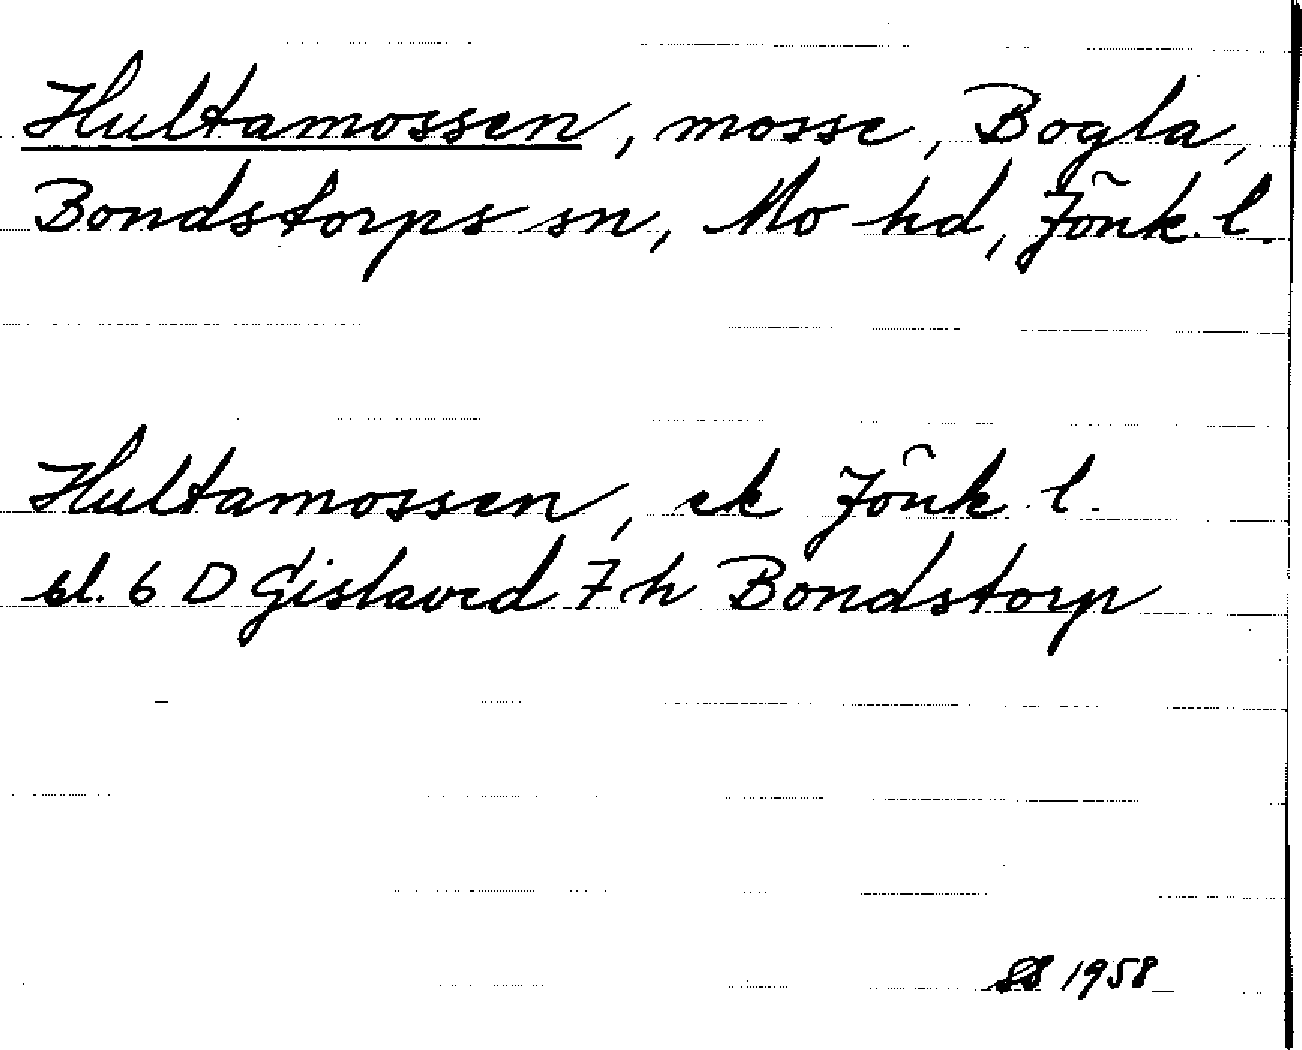 Hultamossen, mosse, Bogla,
Bondstorps sn, Mo hd, Jönk. l.
Hultamossen, ek Jönk. l.
bl. 6 D Gislaved 7 h Bondstorp
1958